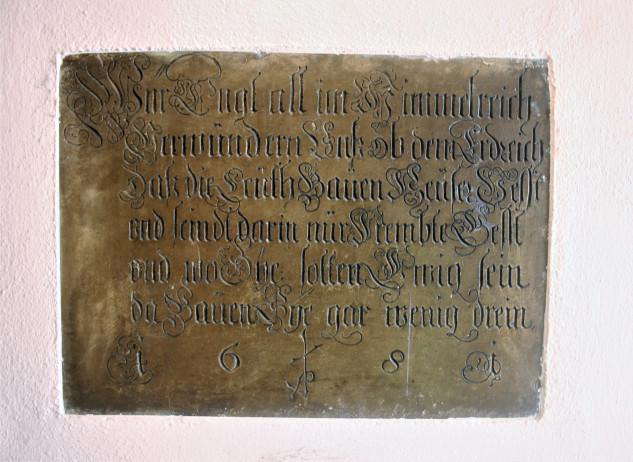 Wür Engl all im Himmelreich
Verwündern Unß ob dem Erdreich
Daß die Leüth Bauen Heüser Vesst
und seindt darin nür Frembte Gesst
und wo Sye sollen Ewig sein
da Bauen Sye gar wenig drein
1 6 8 1